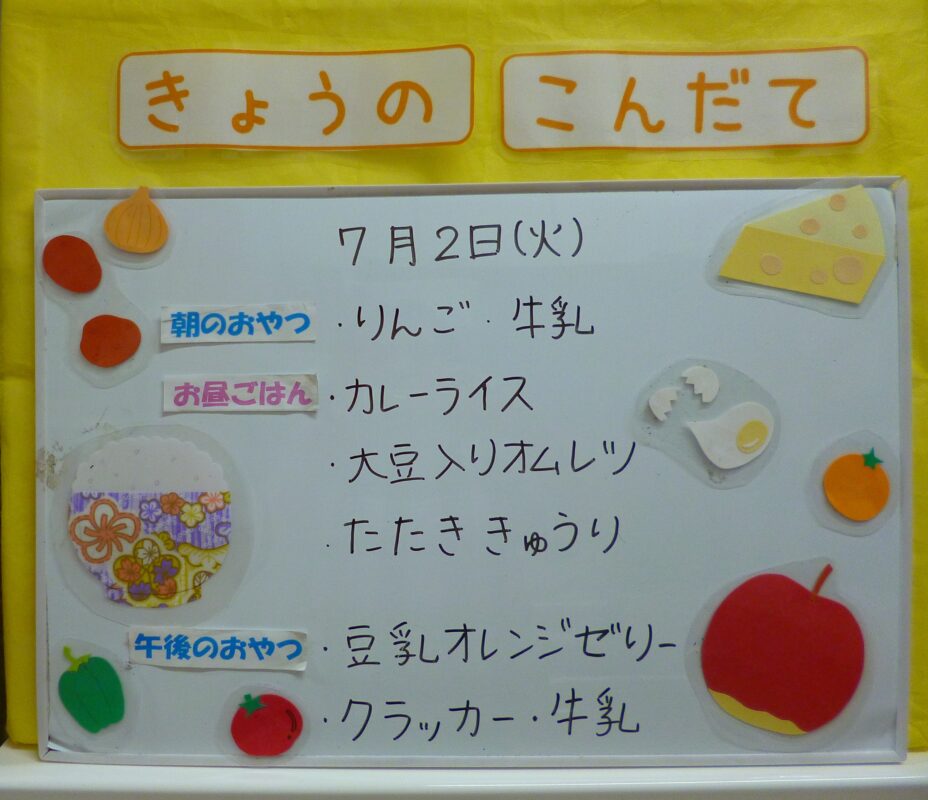 きょうの こんだて
7月2日(火)
朝のおやつ ・りんご・牛乳
お昼ごはん ・カレーライス
・大豆入りオムレツ
・たたききゅうり
午後のおやつ ・豆乳オレンジゼリー
・クラッカー・牛乳